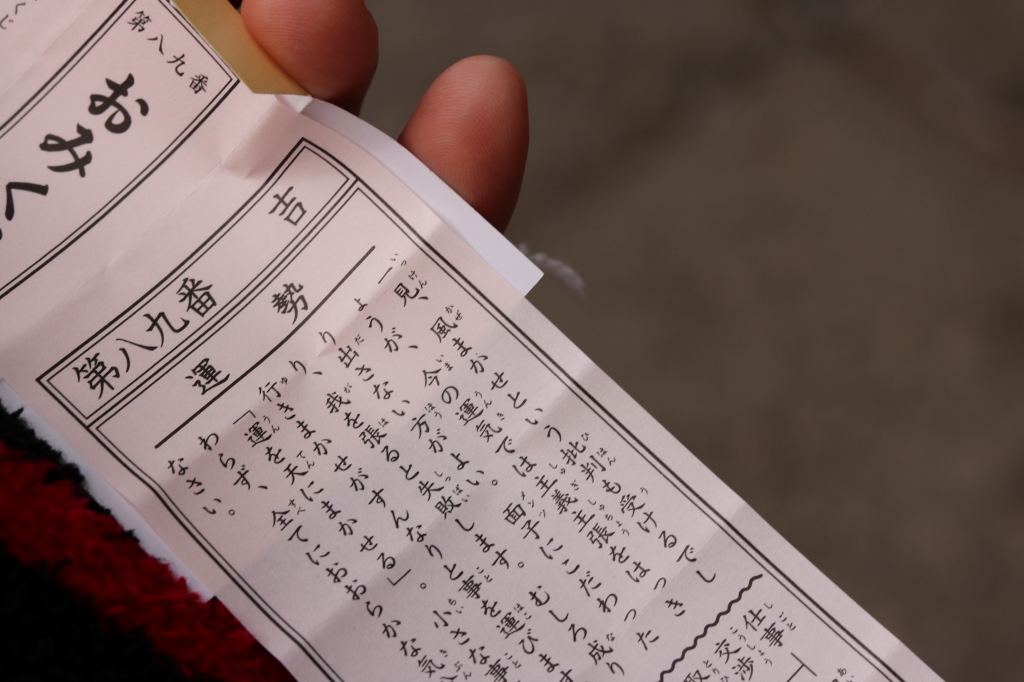 第八九番
おみ
第八九番 吉
運勢
一見、風まかせという批判も受けるでし
ょうが、今の運気では主義主張をはっき
り出さない方がよい。面子にこだわった
り、我を張ると失敗します。むしろ成り
行きまかせがすんなりと事を運びます
「運を天にまかせる」。小さな事
わらず、全てにおおらかな気
なさい。
仕事
交渉
取